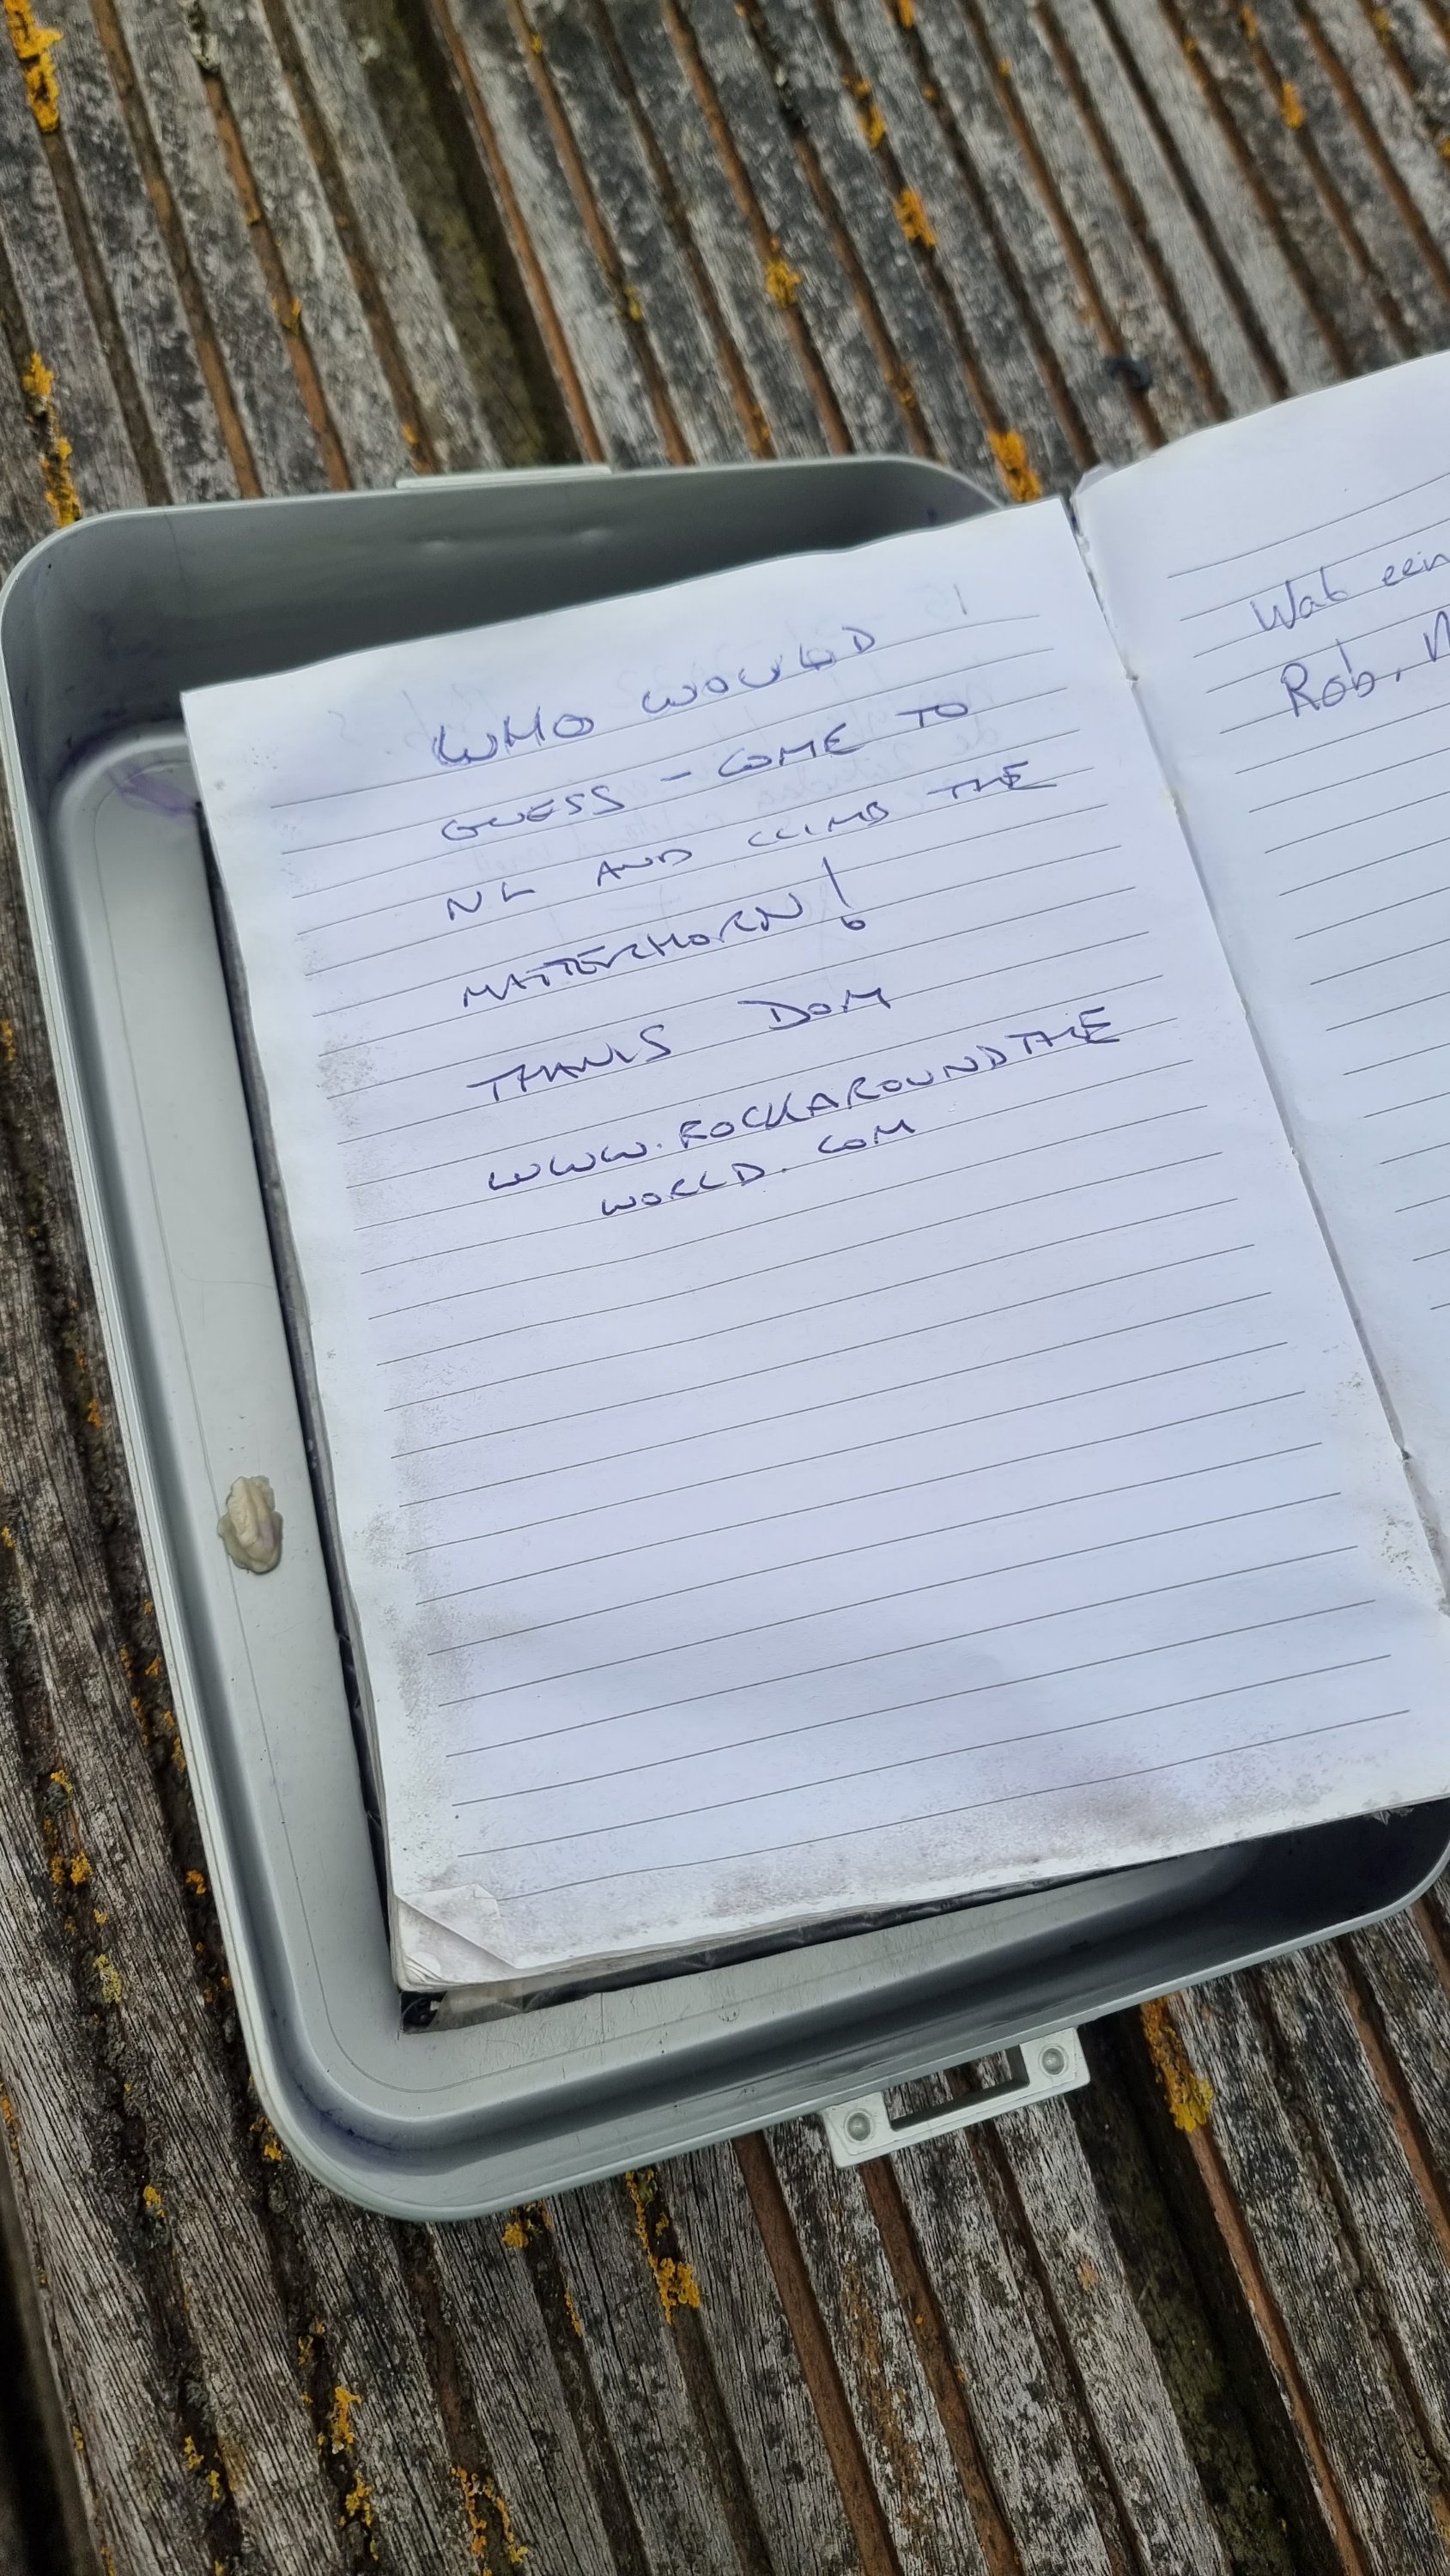 WHO WOULD
GUESS - COME TO
NL AND CLIMB THE
MATTERHORN!
THANKS DOM
WWW.ROCKAROUNDTHE
WORLD.COM
Wat een
Rob,